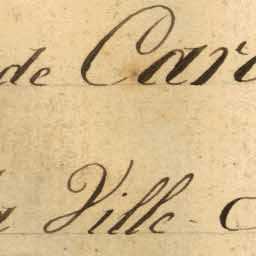 de Car
a Ville